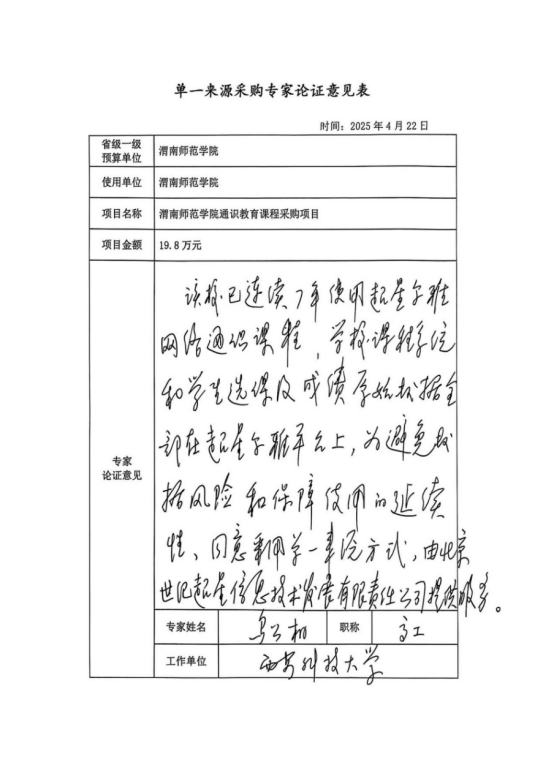 单一来源采购专家论证意见表
时间：2025 年 4 月 22 日
省级一级
预算单位
渭南师范学院
使用单位
渭南师范学院
项目名称
渭南师范学院通识教育课程采购项目
项目金额
19.8 万元
专家
论证意见
该校已连续7年使用超星尔雅
网络通识课程，学校课程系统
和学生选课及成绩原始数据全
部在超星尔雅平台上，为避免数
据风险和保障使用的延续
性，同意采用单一来源方式，由北京
世纪超星信息技术发展有限责任公司提供服务。
专家姓名
职称
高工
工作单位
西安科技大学